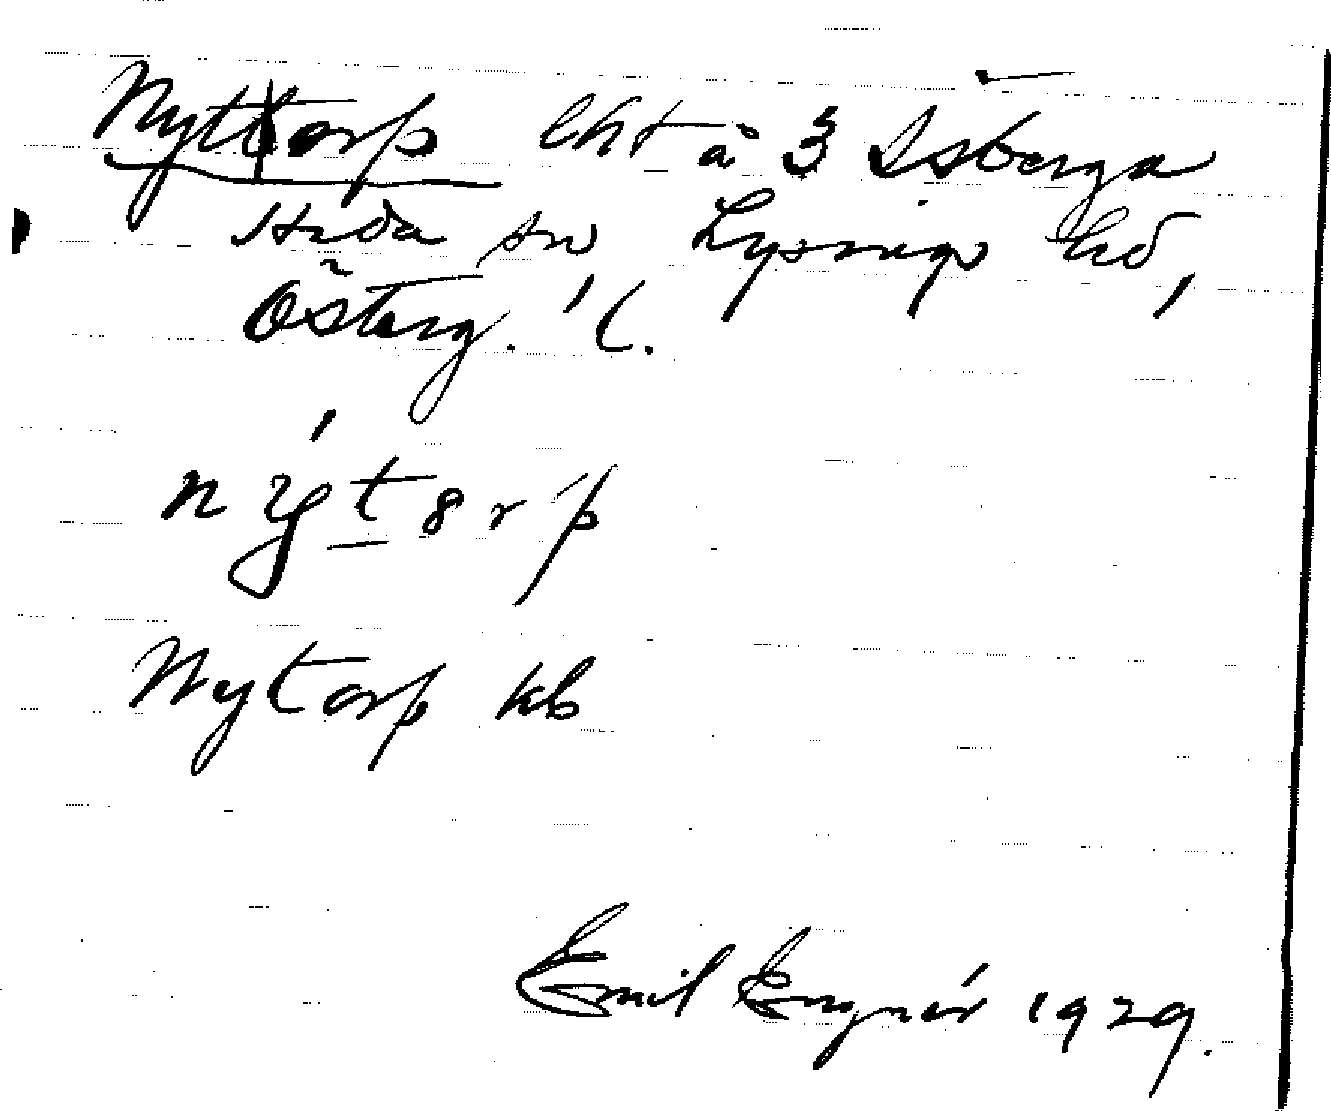 Nyttorp lht å 3 Isberga
Heda sn Lysings hd,
Österg. l.
nýtorp
Nytorp kb
Emil Engnér 1929.